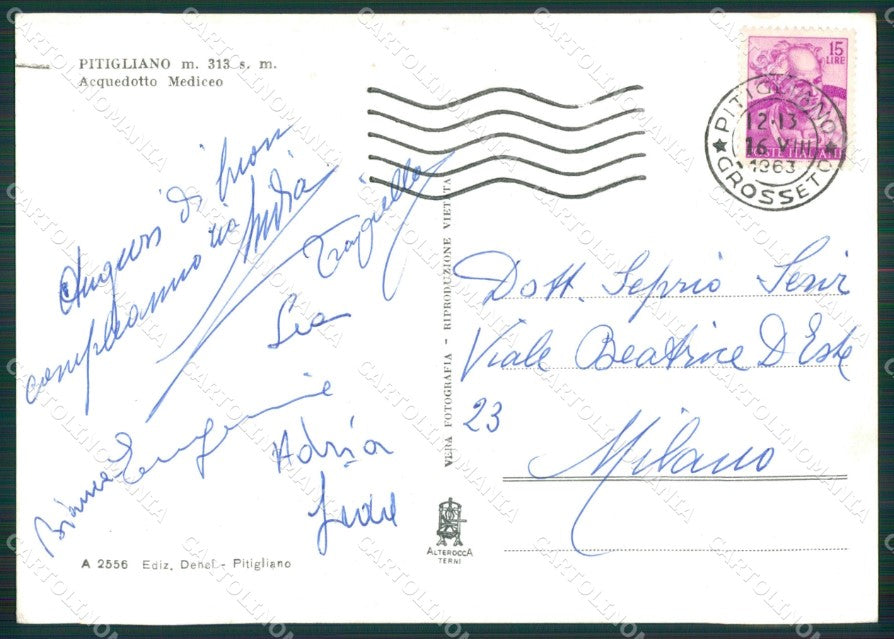 PITIGLIANO m. 313 s. m.
Acquedotto Mediceo
15
LIRE
POSTE ITALIANE
PITIGLIANO
12-13
16 VIII
1963
GROSSETO
Auguri di buon
compleanno zia
Lea
Eugenie
Adria
Bianca
VERA FOTOGRAFIA - RIPRODUZIONE VIETATA
Dott. Seprio
Viale Beatrice D'Este
23
Milano
ALTEROCCA
TERNI
A 2556 Ediz. Denef - Pitigliano
CARTOLINOMANIA